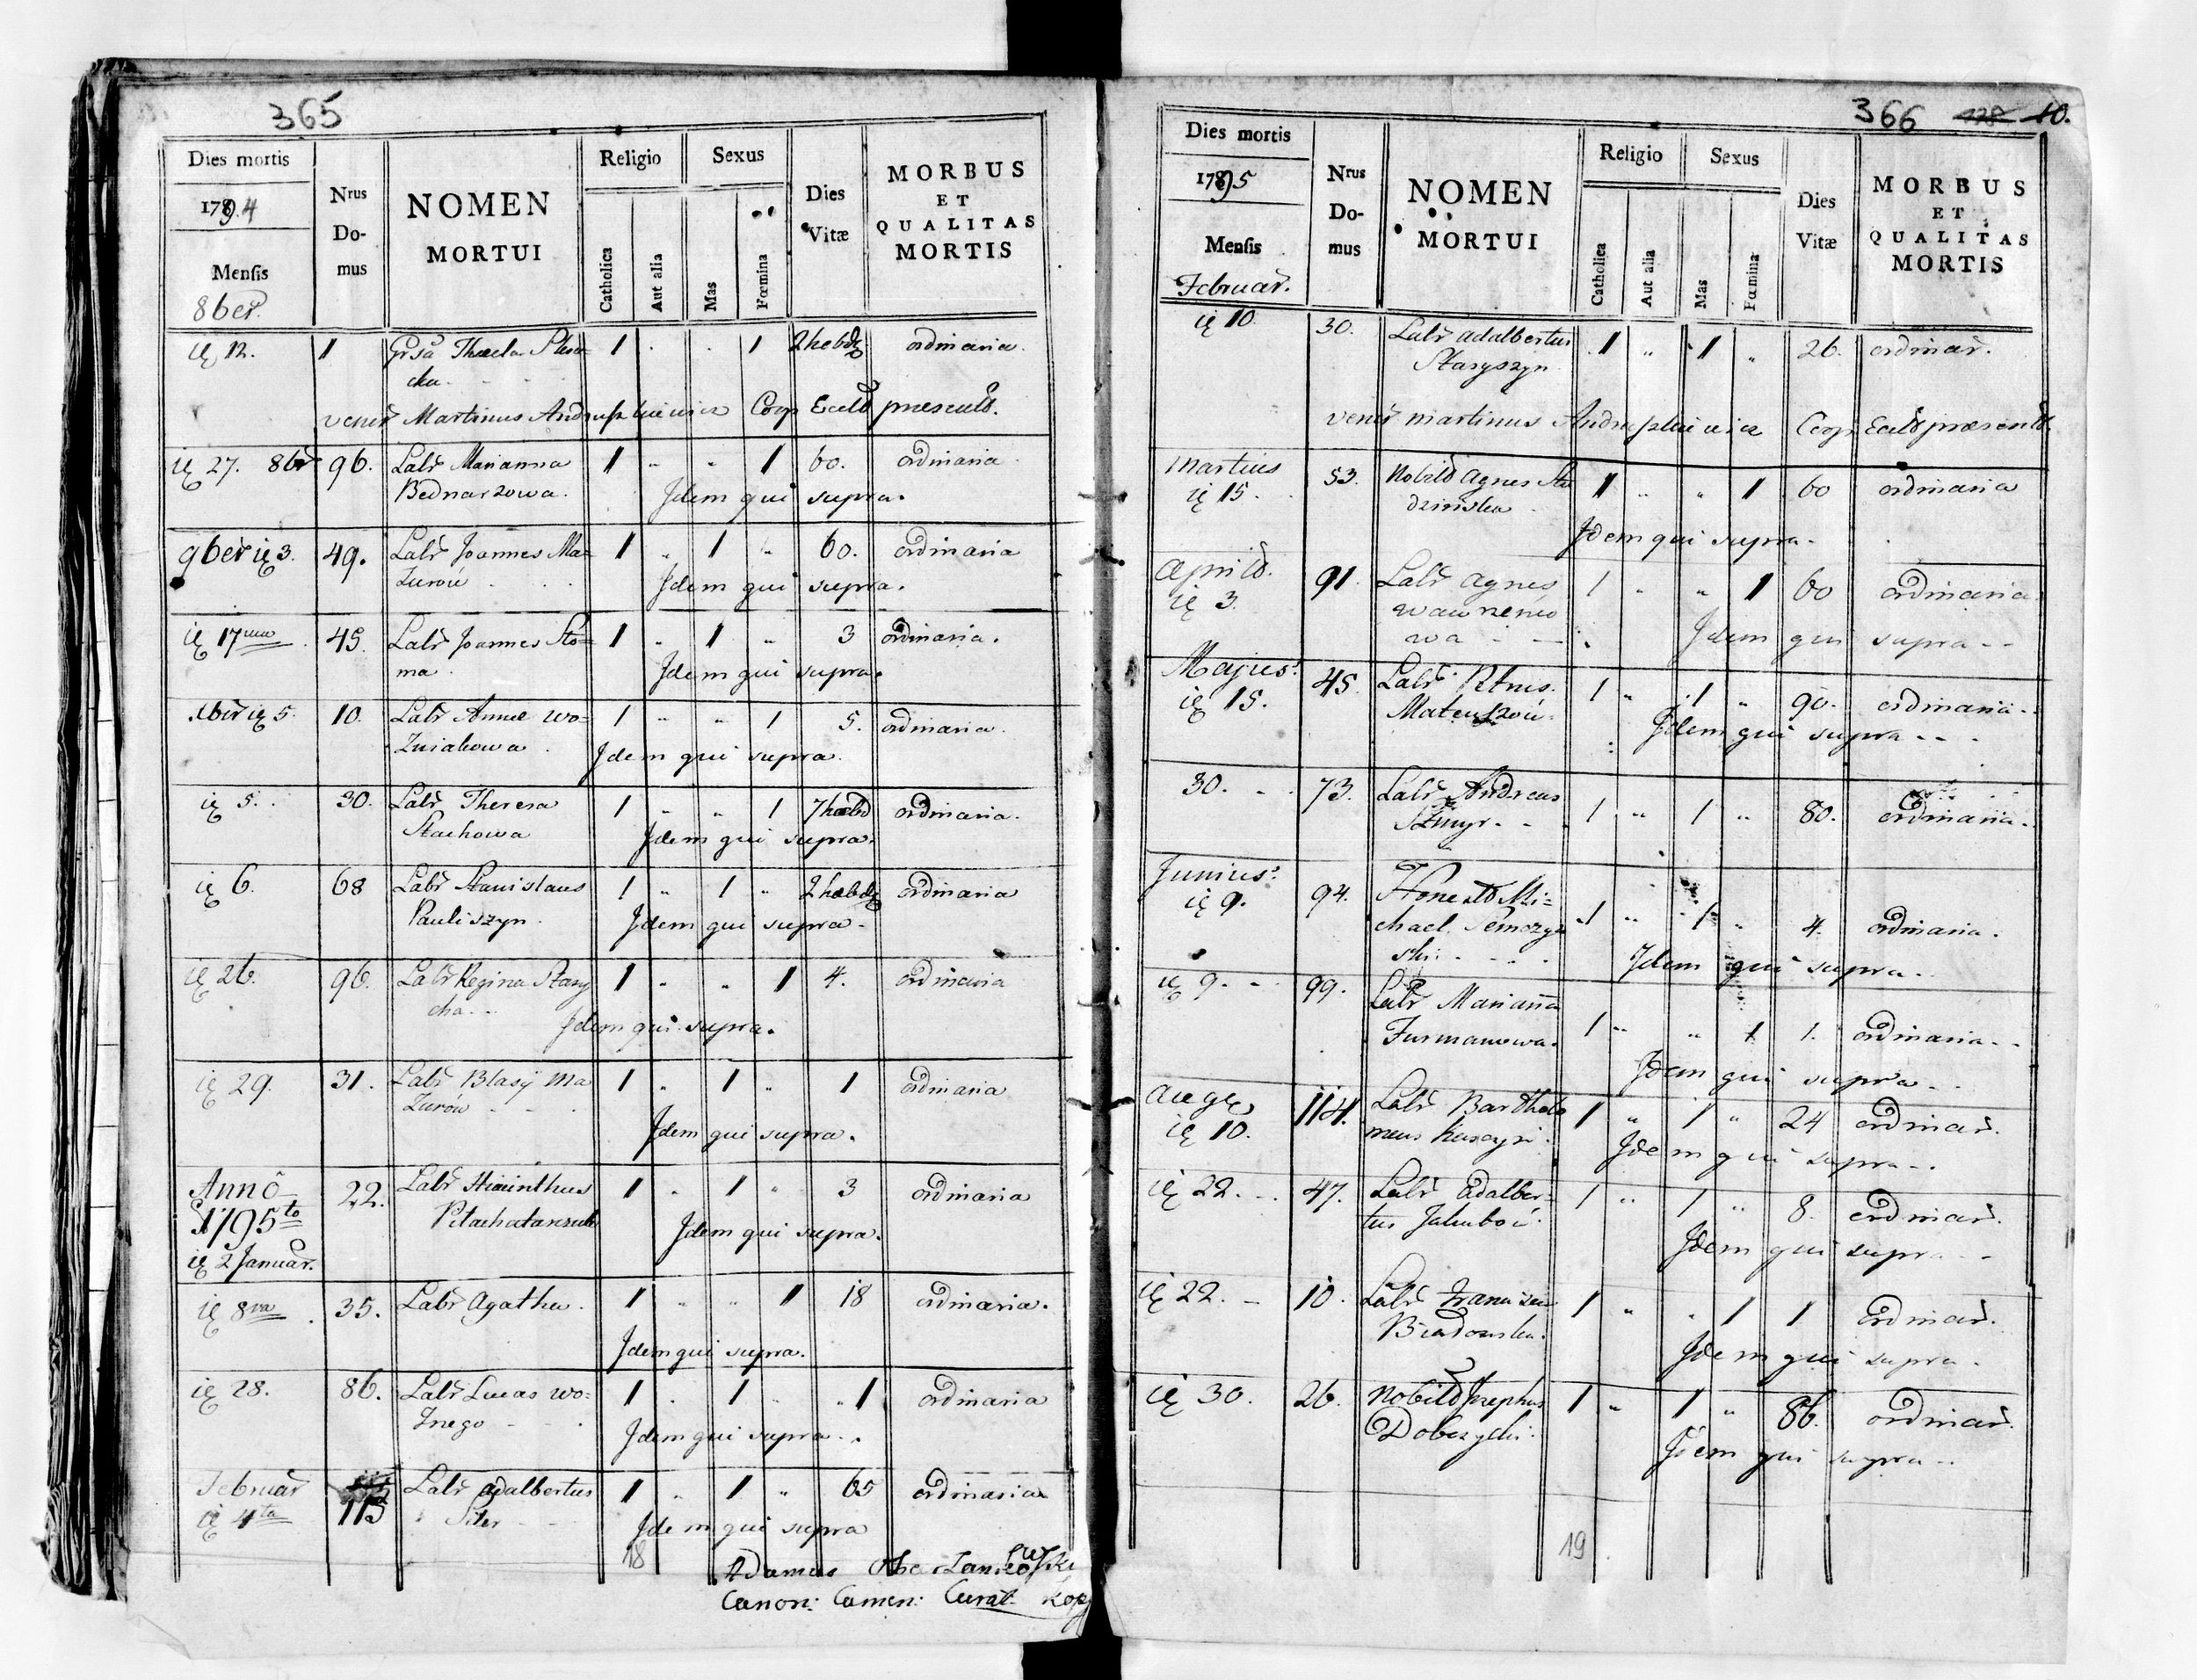 365
Dies mortis
1794
Mensis
8ber.
Nrus
Do-
mus
NOMEN
MORTUI
Religio
Catholica
Aut alia
Sexus
Mas
Fœmina
Dies
Vitæ
MORBUS
ET
QUALITAS
MORTIS
12. 1 Thecla 1 . . 1 2 hebd ordinaria.
cka.
Martinus Coop
27. 8br 96. Labr Marianna 1 " " 1 60. ordinaria
Bednarzowa. Idem qui supra.
9ber 3. 49. Labr Joannes Ma= 1 " 1 " 60. ordinaria
zurów Idem qui supra.
17ma 45. Labr Joannes Sto= 1 " 1 " 3 ordinaria.
ma Idem qui supra.
5. 10. Labr Annae Wo= 1 " " 1 5. ordinaria.
zniakowa Idem qui supra.
5. 30. Labr Theresa 1 " " 1 7 hebd ordinaria.
Stachowa Idem qui supra.
6. 68 Labr Stanislaus 1 " 1 " 2 hebd ordinaria
Pauliszyn. Idem qui supra.
26. 96. Labr Regina Stary 1 " " 1 4. ordinaria
cha Idem qui supra.
29. 31. Labr Blasÿ Ma 1 " 1 " 1 ordinaria
zurów Idem qui supra.
Annô
1795to 22. Labr 1 " 1 " 3 ordinaria
2 Januar. Idem qui supra.
8va 35. Labr Agatha. 1 " " 1 18 ordinaria.
Idem qui supra.
28. 86. Labr Lucas Wo= 1 . 1 . 1 ordinaria
znego Idem qui supra.
Februar 115 Labr Adalbertus 1 " 1 " 65 ordinaria
4ta Idem qui supra
18
Adamus
Canon: Camen: Curat: Kop
366 10.
Dies mortis
1795
Mensis
Februar.
Nrus
Do-
mus
NOMEN
MORTUI
Religio
Catholica
Aut alia
Sexus
Mas
Fœmina
Dies
Vitæ
MORBUS
ET
QUALITAS
MORTIS
10 30. Labr Adalbertus 1 " 1 " 26. ordinar.
Staryszyn
Martinus Coop
Martius 53. Nobild Agnes Stu 1 " " 1 60 ordinaria
15. dzinska Idem qui supra.
Aprild. 91. Labr Agnes 1 " " 1 60 ordinaria
3. wawrenio
wa Idem qui supra
Majus. 45 Labr Petrus 1 " 1 " 90. ordinaria
15. Mateuszów. Idem qui supra
30. 73. Labr Andreas 1 " 1 " 80. ordinaria.
Szmyr
Junius. 94. Honestd Mi=
9. chael 1 " 1 " 4. ordinaria.
ski Idem qui supra
9. 99. Labr Marianna
Furmanowa. 1 " " 1 1. ordinaria
Idem qui supra
114. Labr Bartholo 1 " 1 " 24 ordinar.
10. meus Idem qui supra
22. 47. Labr Adalber= 1 " 1 " 8. ordinar.
tus Jakubów. Idem qui supra
22. 10. Labr 1 " . 1 1 ordinar.
Idem qui supra.
30. 26. Nobild Josephus 1 " 1 " 86. ordinar.
Dobrzycki. Idem qui supra
19